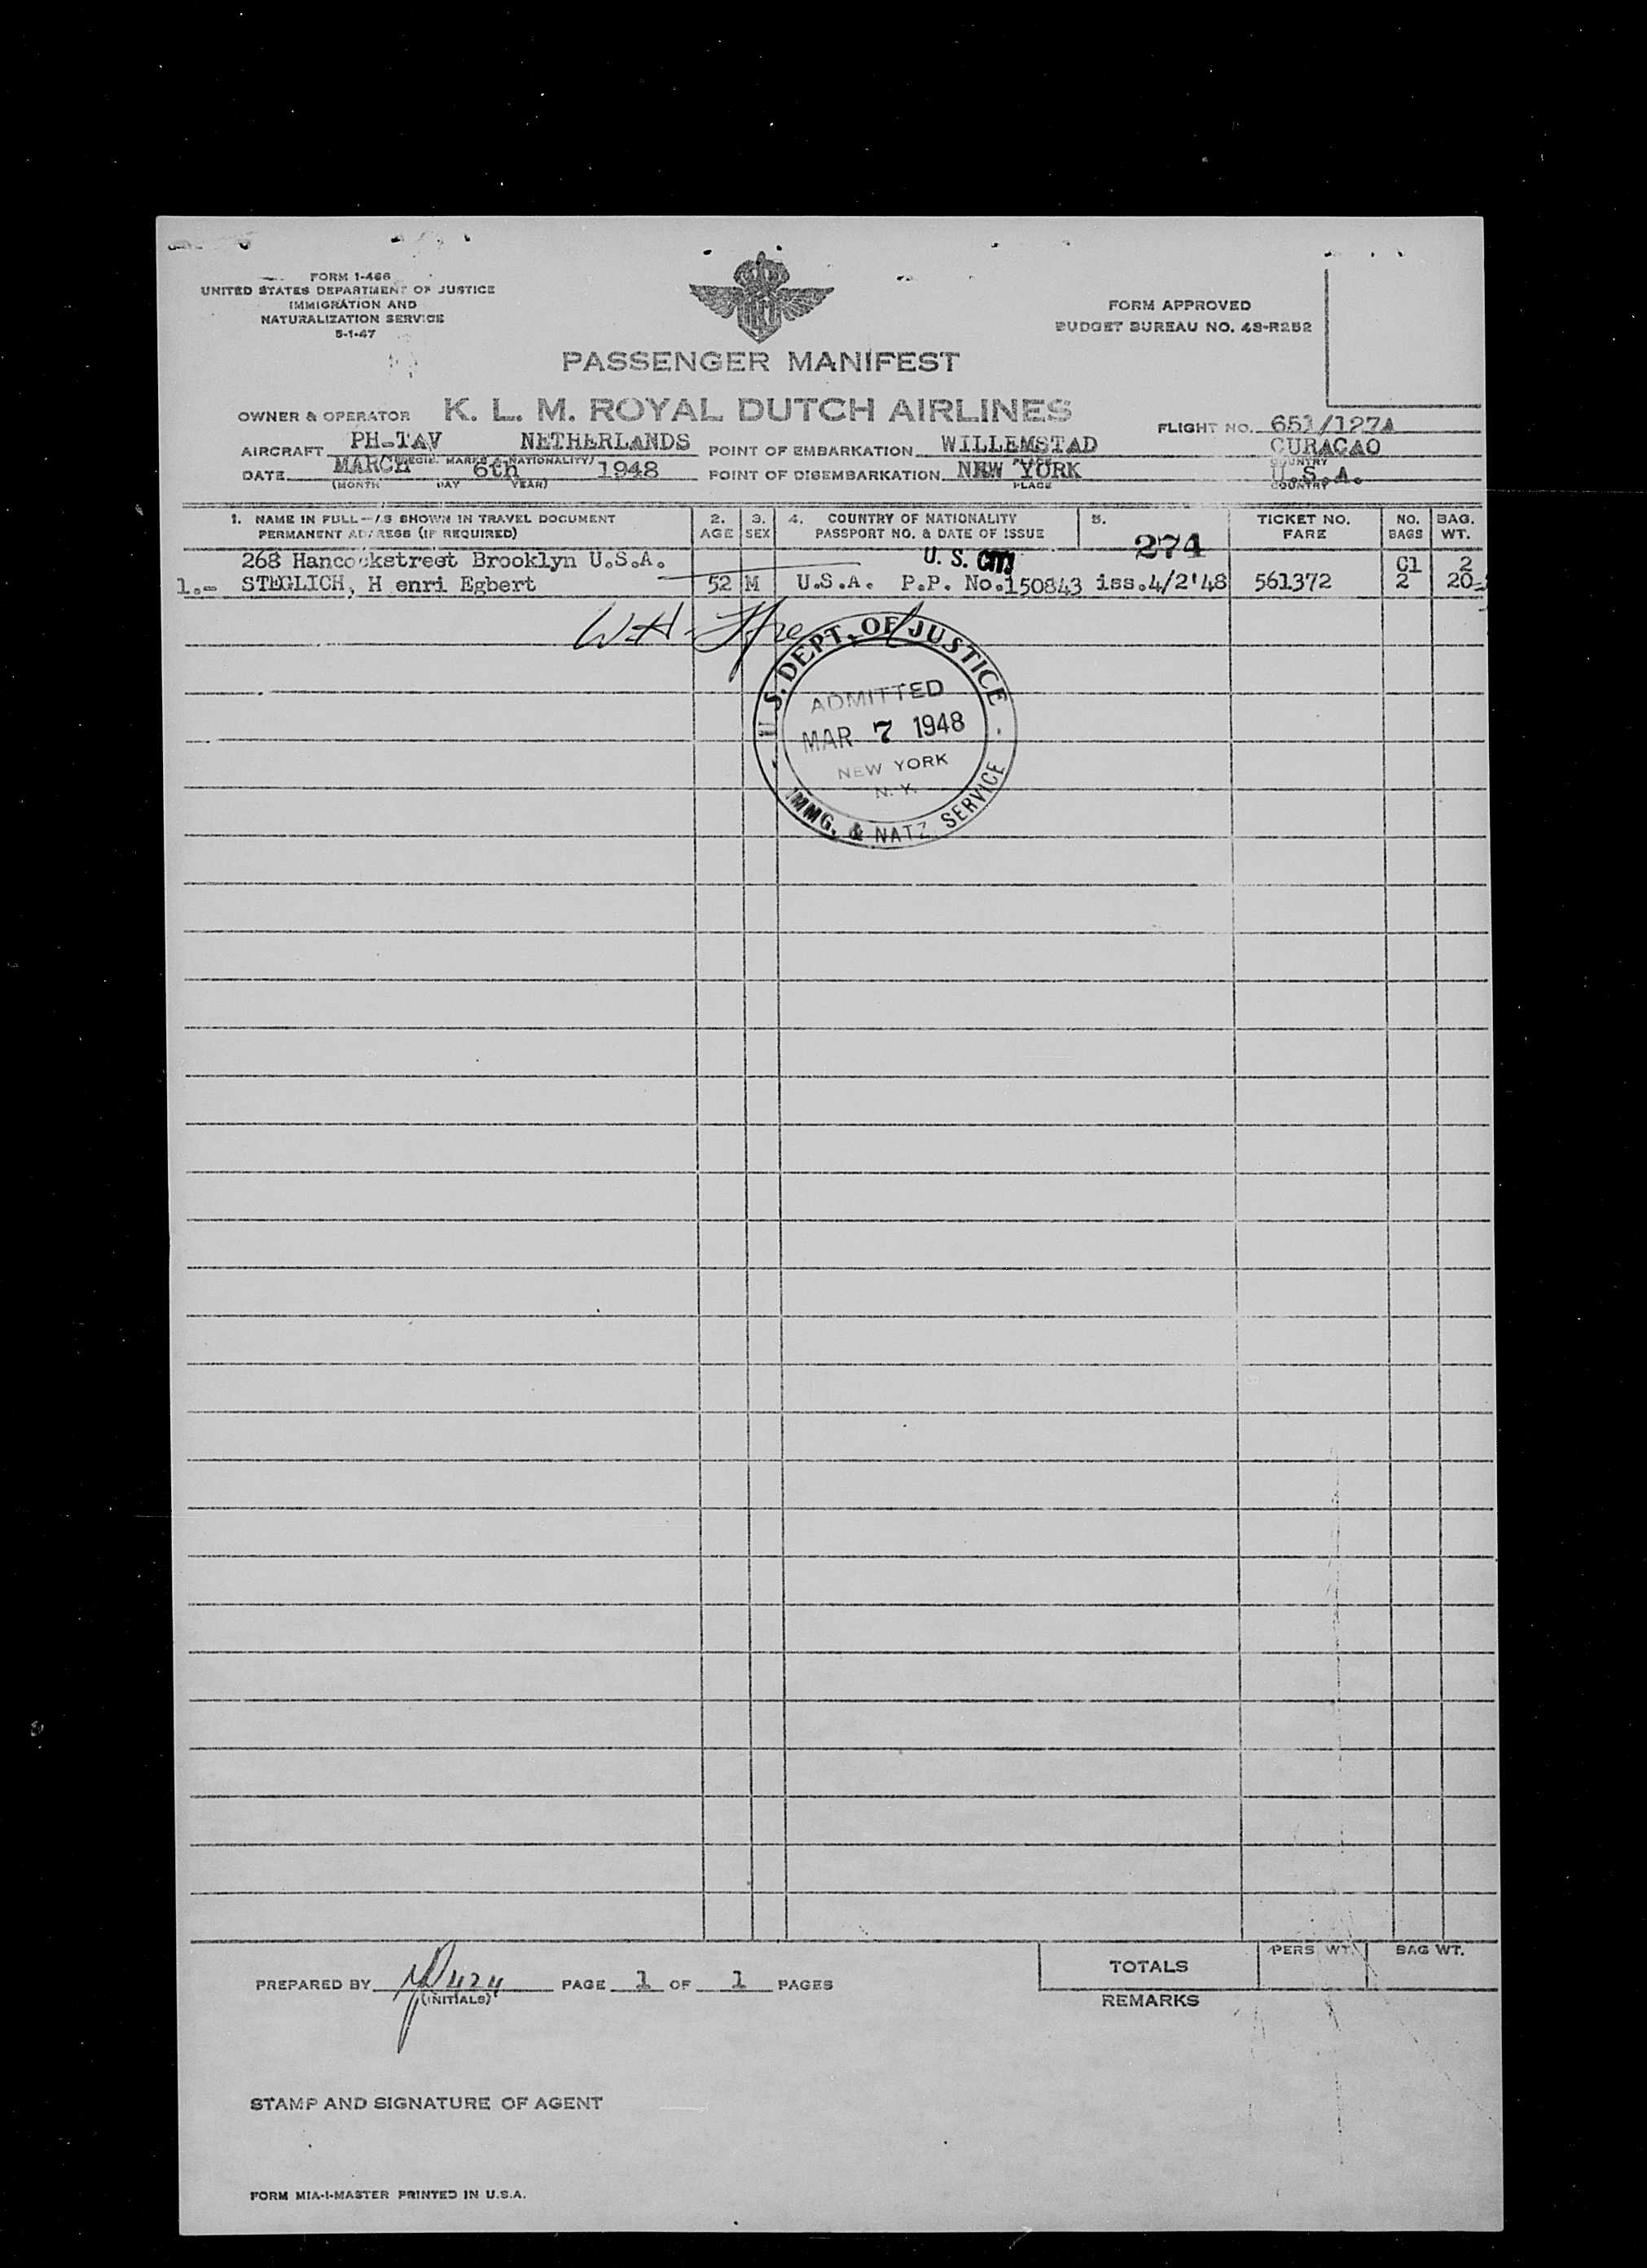 FORM I-466
UNITED STATES DEPARTMENT OF JUSTICE
IMMIGRATION AND
NATURALIZATION SERVICE
5-1-47
FORM APPROVED
BUDGET BUREAU NO. 43-R252
PASSENGER MANIFEST
OWNER & OPERATOR K. L. M. ROYAL DUTCH AIRLINES
FLIGHT NO. 651/127A
AIRCRAFT PH-TAV NETHERLANDS POINT OF EMBARKATION WILLEMSTAD CURACAO
MARKS & NATIONALITY) PLACE COUNTRY
DATE MARCH 6th 1948 POINT OF DISEMBARKATION NEW YORK U.S.A.
(MONTH DAY YEAR) PLACE COUNTRY
1. NAME IN FULL—AS SHOWN IN TRAVEL DOCUMENT 2. 3. 4. COUNTRY OF NATIONALITY 5. TICKET NO. NO. BAG.
PERMANENT ADDRESS (IF REQUIRED) AGE SEX PASSPORT NO. & DATE OF ISSUE 274 FARE BAGS WT.
268 Hancockstreet Brooklyn U.S.A. U. S. Cl 2
1.- STEGLICH, H enri Egbert 52 M U.S.A. P.P. No.150843 iss.4/2'48 561372 2 20
W.H.
U.S. DEPT. OF JUSTICE
ADMITTED
MAR 7 1948
NEW YORK
N. Y.
IMMG. & NATZ. SERVICE
PERS WT. BAG WT.
TOTALS
PREPARED BY PAGE 1 OF 1 PAGES
(INITIALS)
REMARKS
STAMP AND SIGNATURE OF AGENT
FORM MIA-I-MASTER PRINTED IN U.S.A.